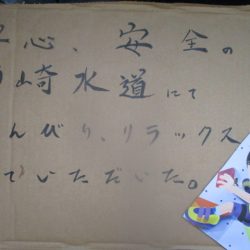 心、安全の
崎水道にて
んびり、リラックス
ていただいた。